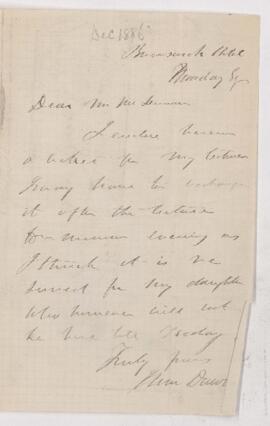 Dec 1886
Brunswick Hotel
Monday Eg
Dear Mr McLennan
I enclose herein
a ticket for my lecture
I may have to exchange
it after the lecture
tomorrow evening as
I think it is re
served for my daughter
who however will not
be here till Tuesday
Truly yours
Wm Daws